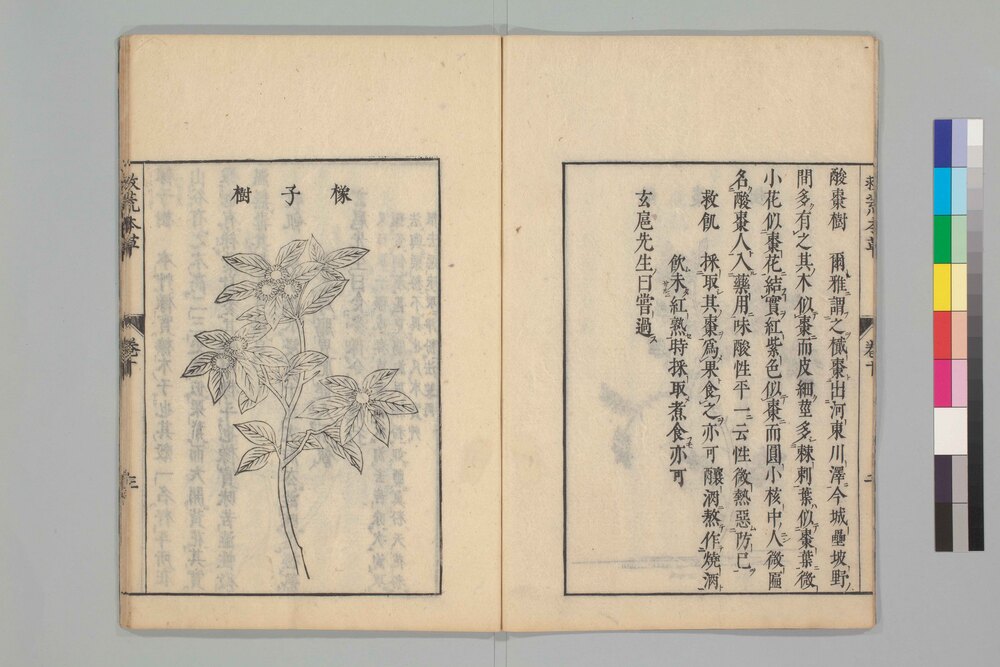 酸棗樹　爾雅謂之樲棗出河東川澤今城壘坡野
間多有之其木似棗而皮細莖多棘刺葉似棗葉微
小花似棗花結實紅紫色似棗而圓小核中人微匾
名酸棗人入藥用味酸性平一云性微熱惡防已
救飢　採取其棗爲果食之亦可釀酒熬作燒酒
飲未紅熟時採取煮食亦可
玄扈先生曰嘗過
卷十
橡子樹
救荒本草
卷十
三